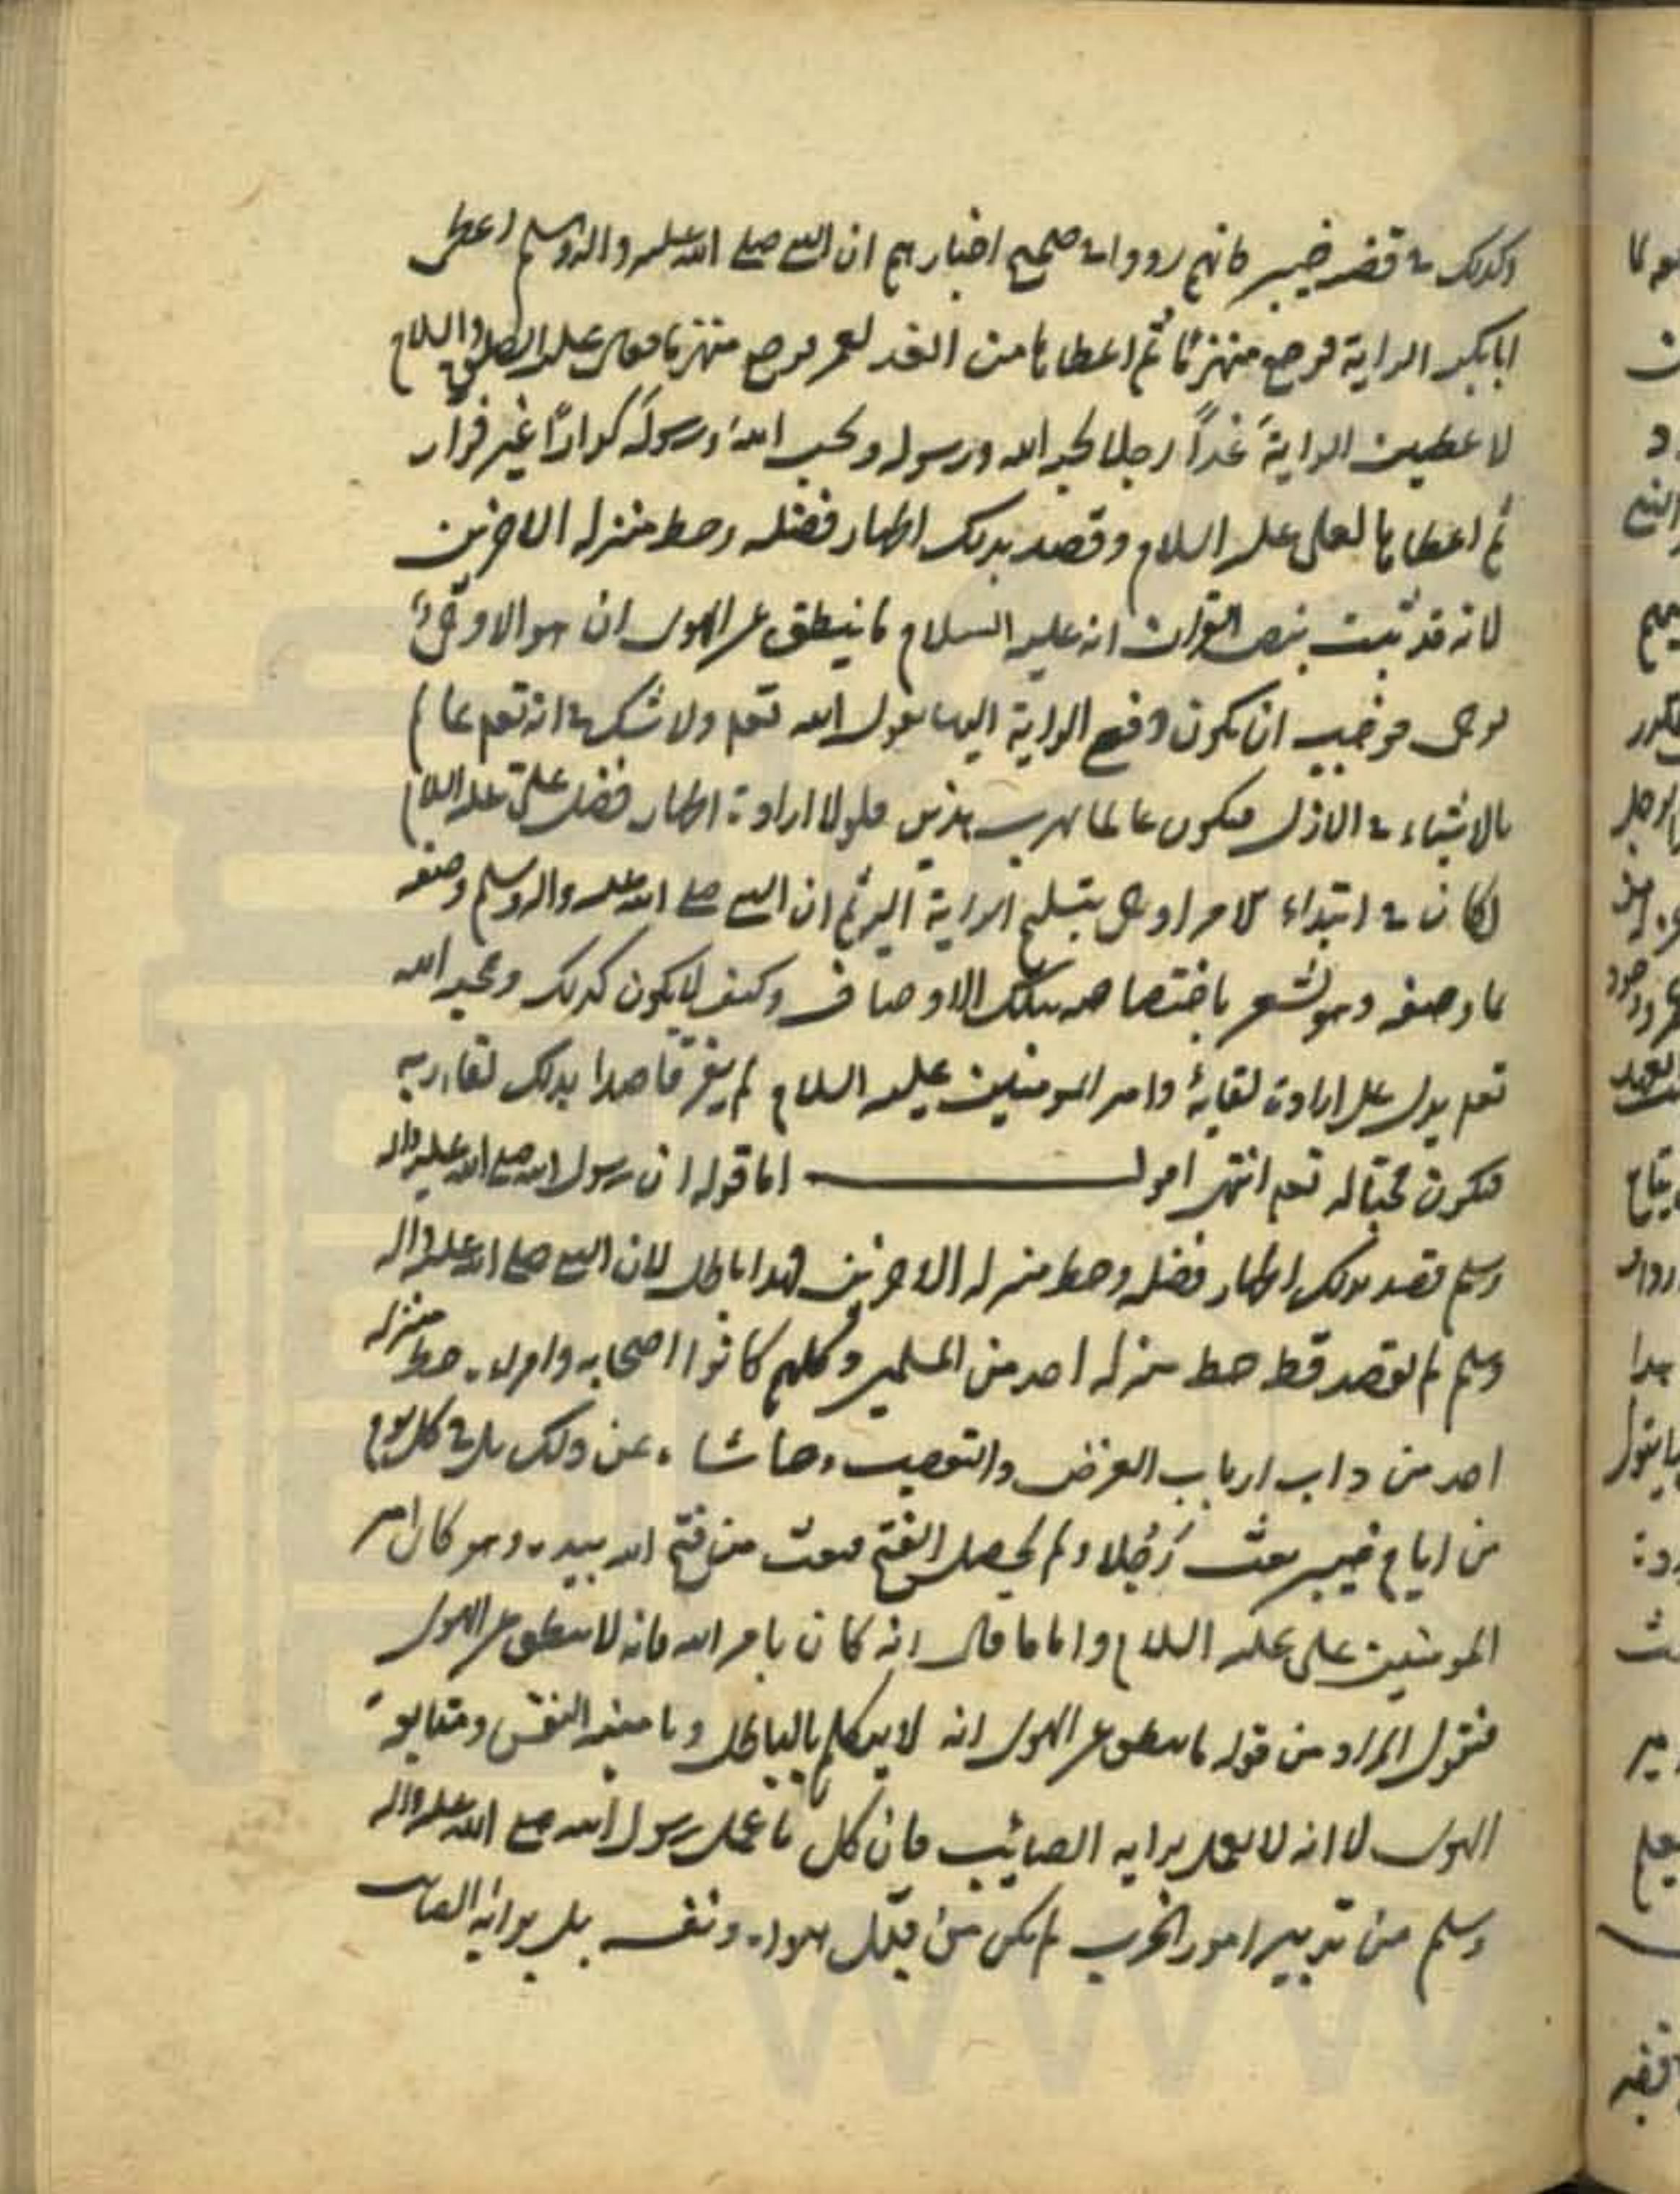 وكذلك في قضية خيبر فانهم رووا في صحيح اخبارهم ان النبي صلى الله عليه واله وسلم اعطى
ابا بكر الراية فرجع منهزما ثم اعطاها من الغد لعمر فرجع منهزما فقال عليه الصلوة والسلام
لاعطين الراية غداً رجلا يحبه الله ورسوله ويحب الله ورسوله كراراً غير فرار
ثم اعطاها لعلي عليه السلام وقصد بذلك اظهار فضله وحط منزلة الاخرين
لانه قد ثبت بنص القران انه عليه السلام ما ينطق عن الهوى ان هو الا وحي
يوحى فوجب ان يكون دفع الراية اليهما بقول الله تعم ولا شك في انه تعم عالم
بالاشياء في الازل فيكون عالما بهرب هذين فلولا ارادة اظهار فضل علي عليه السلام
لكان في ابتداء الامر اوحى بتسليم الراية اليه ثم ان النبي صلى الله عليه واله وسلم وصفه
بما وصفه وهو مشعر باختصاصه بتلك الاوصاف وكيف لا يكون كذلك ومحبة الله
تعم يدل على ارادة لقائه وامير المومنين عليه السلام لم يفر قاصدا بذلك لقاء ربه
فيكون محبا له تعم انتهى اقول اما قوله ان رسول الله صلى الله عليه واله
وسلم قصد بذلك اظهار فضله وحط منزلة الاخرين فهذا باطل لان النبي صلى الله عليه واله
وسلم لم يقصد قط حط منزلة احد من المسلمين وكلهم كانوا اصحابه وامراءه حط منزلة
احد من داب ارباب الغرض والتعصب وحاشاه عن ذلك بل في كل يوم
من ايام خيبر بعث رجلا ولم يحصل الفتح فبعث من فتح الله بيده وهو كان امير
المومنين علي عليه السلام واما ما قال انه كان بامر الله فانه لا ينطق عن الهوى
فنقول المراد من قوله ما ينطق عن الهوى انه لا يتكلم بالباطل وما متابعة النفس ومتابعة
الهوى لا انه لا يعمل برايه الصائب فان كل ما عمل رسول الله صلى الله عليه واله
وسلم من تدبير امور الحرب لم يكن من قبل هواء ونفسه بل برايه الصائب